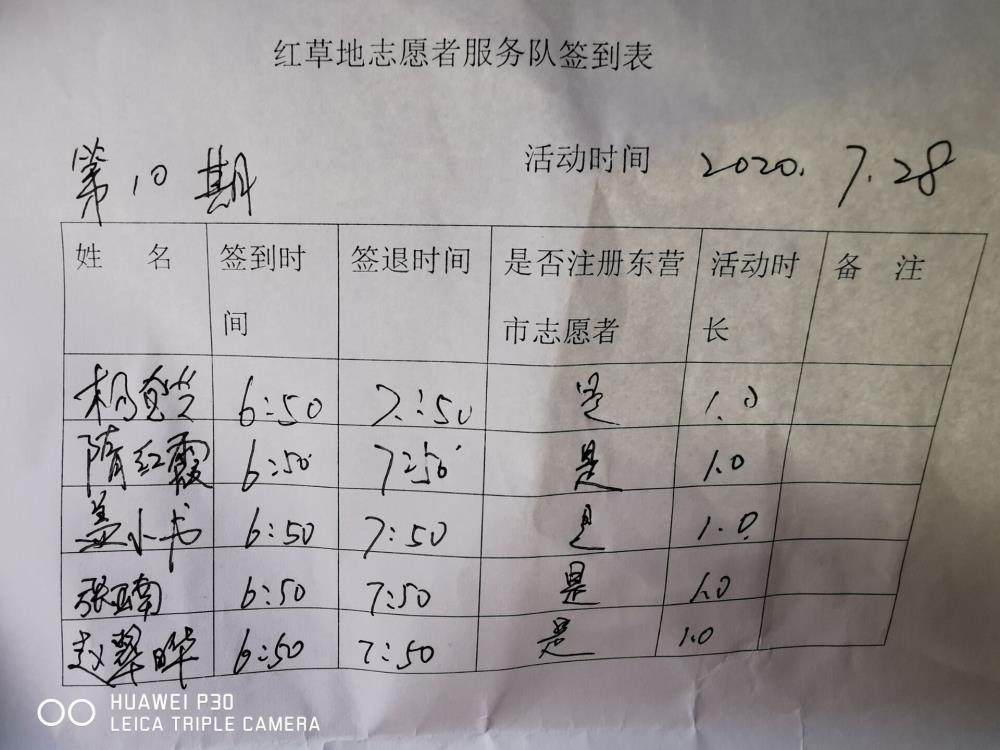 红草地志愿者服务队签到表
第10期 活动时间 2020.7.28
姓 名 签到时间 签退时间 是否注册东营市志愿者 活动时长 备 注
杨 6:50 7:50 是 1.0
隋红霞 6:50 7:50 是 1.0
盖小书 6:50 7:50 是 1.0
张亚南 6:50 7:50 是 1.0
赵翠晔 6:50 7:50 是 1.0
HUAWEI P30
LEICA TRIPLE CAMERA